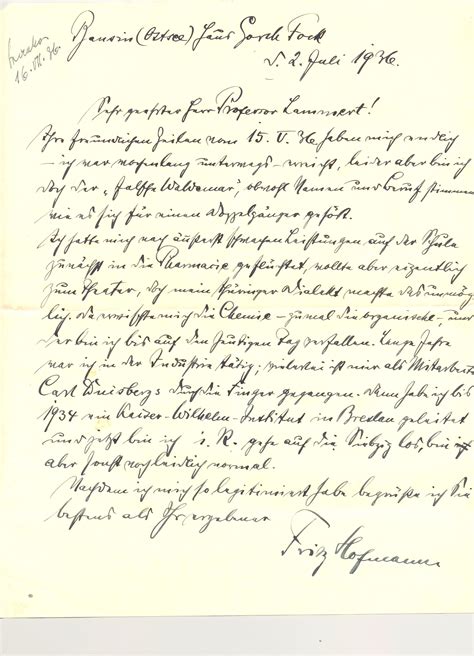 16. VII. 36
Bansin (Ostsee) Haus Gorch Fock
d. 2. Juli 1936.
Sehr geehrter Herr Professor Lammert!
Ihre freundlichen Zeilen vom 15. V. 36 haben mich endlich
– ich war wochenlang unterwegs – erreicht, leider aber bin ich
doch der „falsche Waldemar", obwohl Namen und Beruf stimmen
wie es sich für einen Doppelgänger gehört.
Ich hatte mich nach äußerst schwachen Leistungen auf der Schule
zunächst in die Pharmacie geflüchtet, wollte aber eigentlich
zum Theater, doch mein Thüringer Dialekt machte das unmög-
lich. da erwischte mich die Chemie – zumal die organische –, und
der bin ich bis auf den heutigen Tag verfallen. Lange Jahre
war ich in der Industrie tätig; vielerlei ist mir als Mitarbeiter
Carl Duisbergs durch die Finger gegangen. Dann habe ich bis
1934 ein Kaiser-Wilhelm-Institut in Breslau geleitet
und jetzt bin ich i. R. gehe auf die Siebzig los, bin
aber sonst noch leidlich normal.
Nachdem ich mich so legitimiert habe begrüße ich Sie
bestens als Ihr ergebener
Fritz Hofmann.